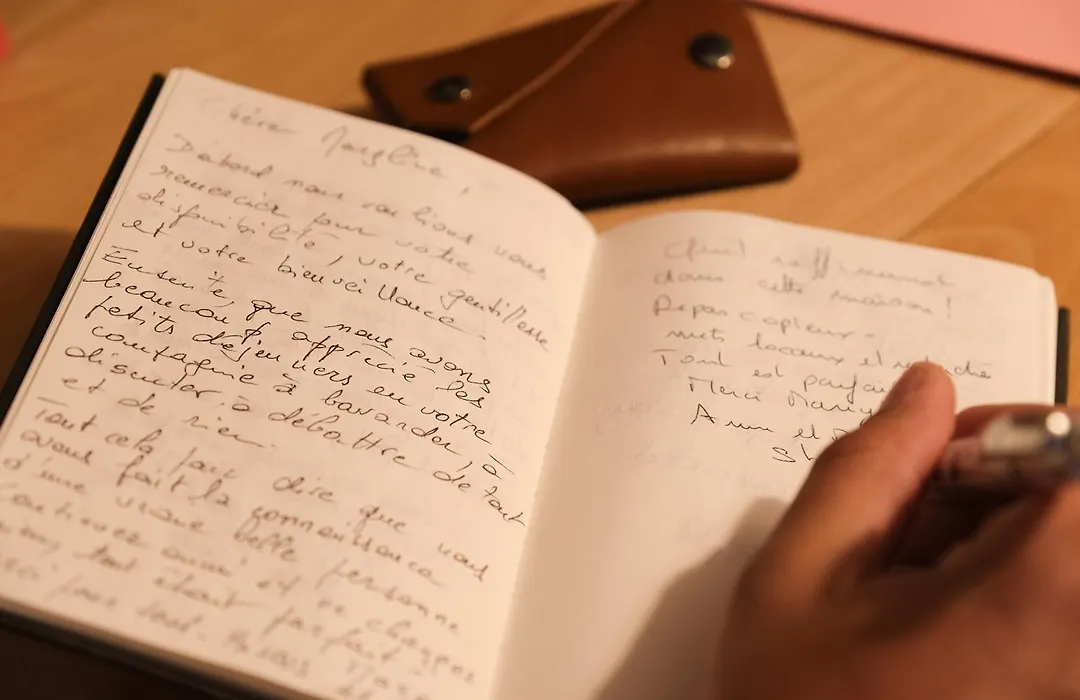 D'abord nous voulions vous
remercier pour votre
disponibilité, votre gentillesse
et votre bienveillance.
Ensuite, que nous avons
beaucoup apprécié les
petits déjeuners en votre
compagnie à bavarder, à
discuter, à débattre de tout
et de rien.
Tout cela pour dire que nous
avons fait la connaissance
d'une vraie belle personne
Continuez ainsi et ne changez
rien, tout était parfait
pour tout.
Quel raffinement
dans cette maison!
Repas copieux -
mets locaux et
Tout est parfait
Merci
Anne et